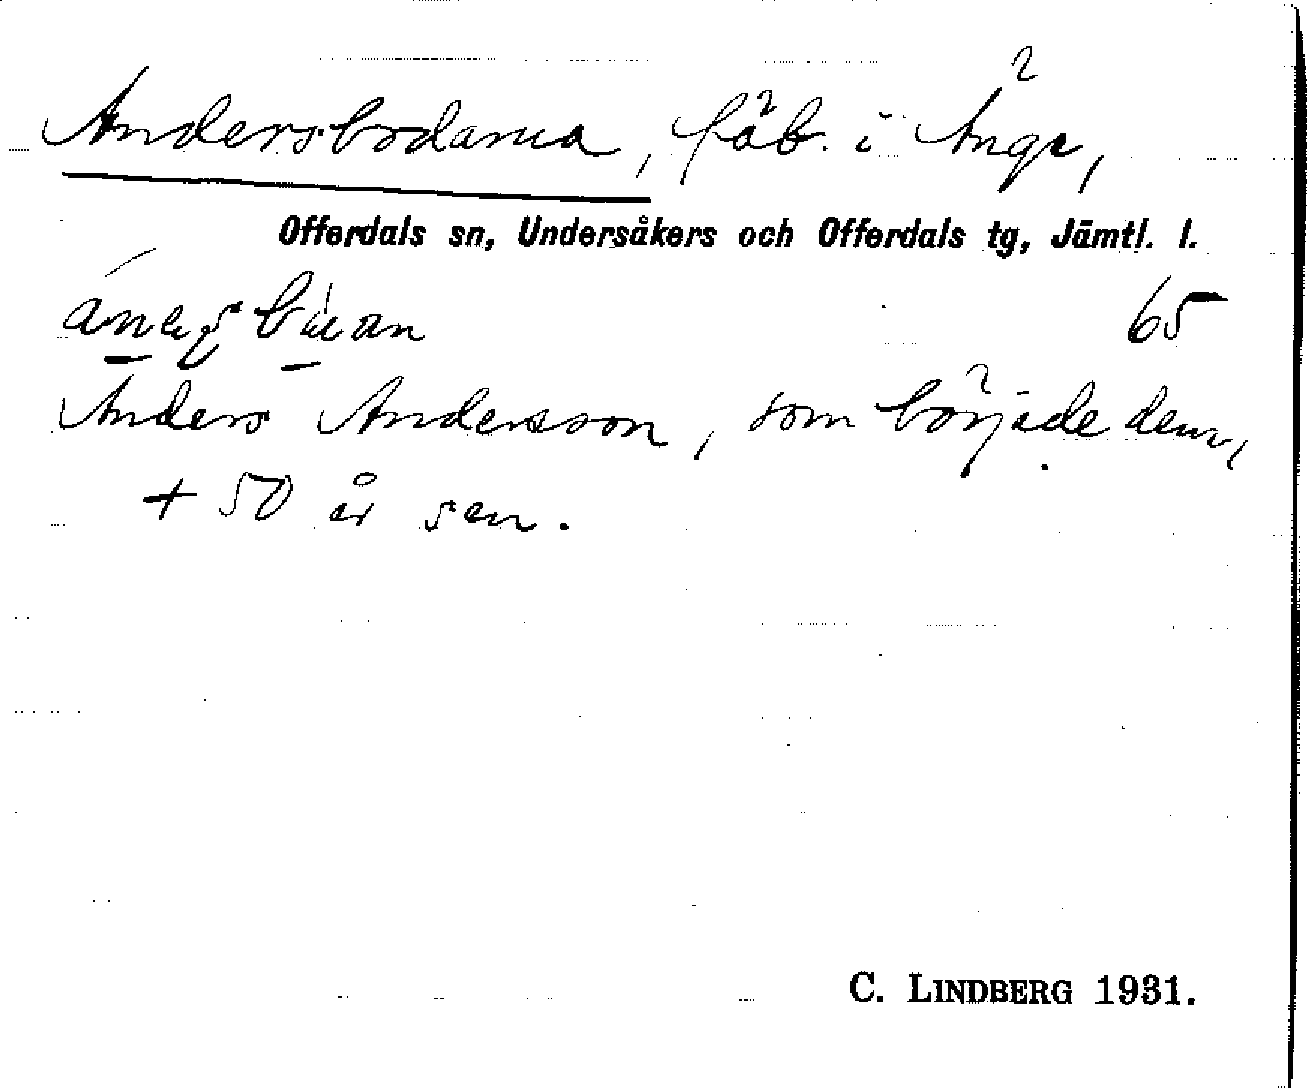 Andersbodarna, fäb. i Änge,
Offerdals sn, Undersåkers och Offerdals tg, Jämtl. l.
65
Anders Andersson, som började dem,
+ 50 år sen.
C. LINDBERG 1931.